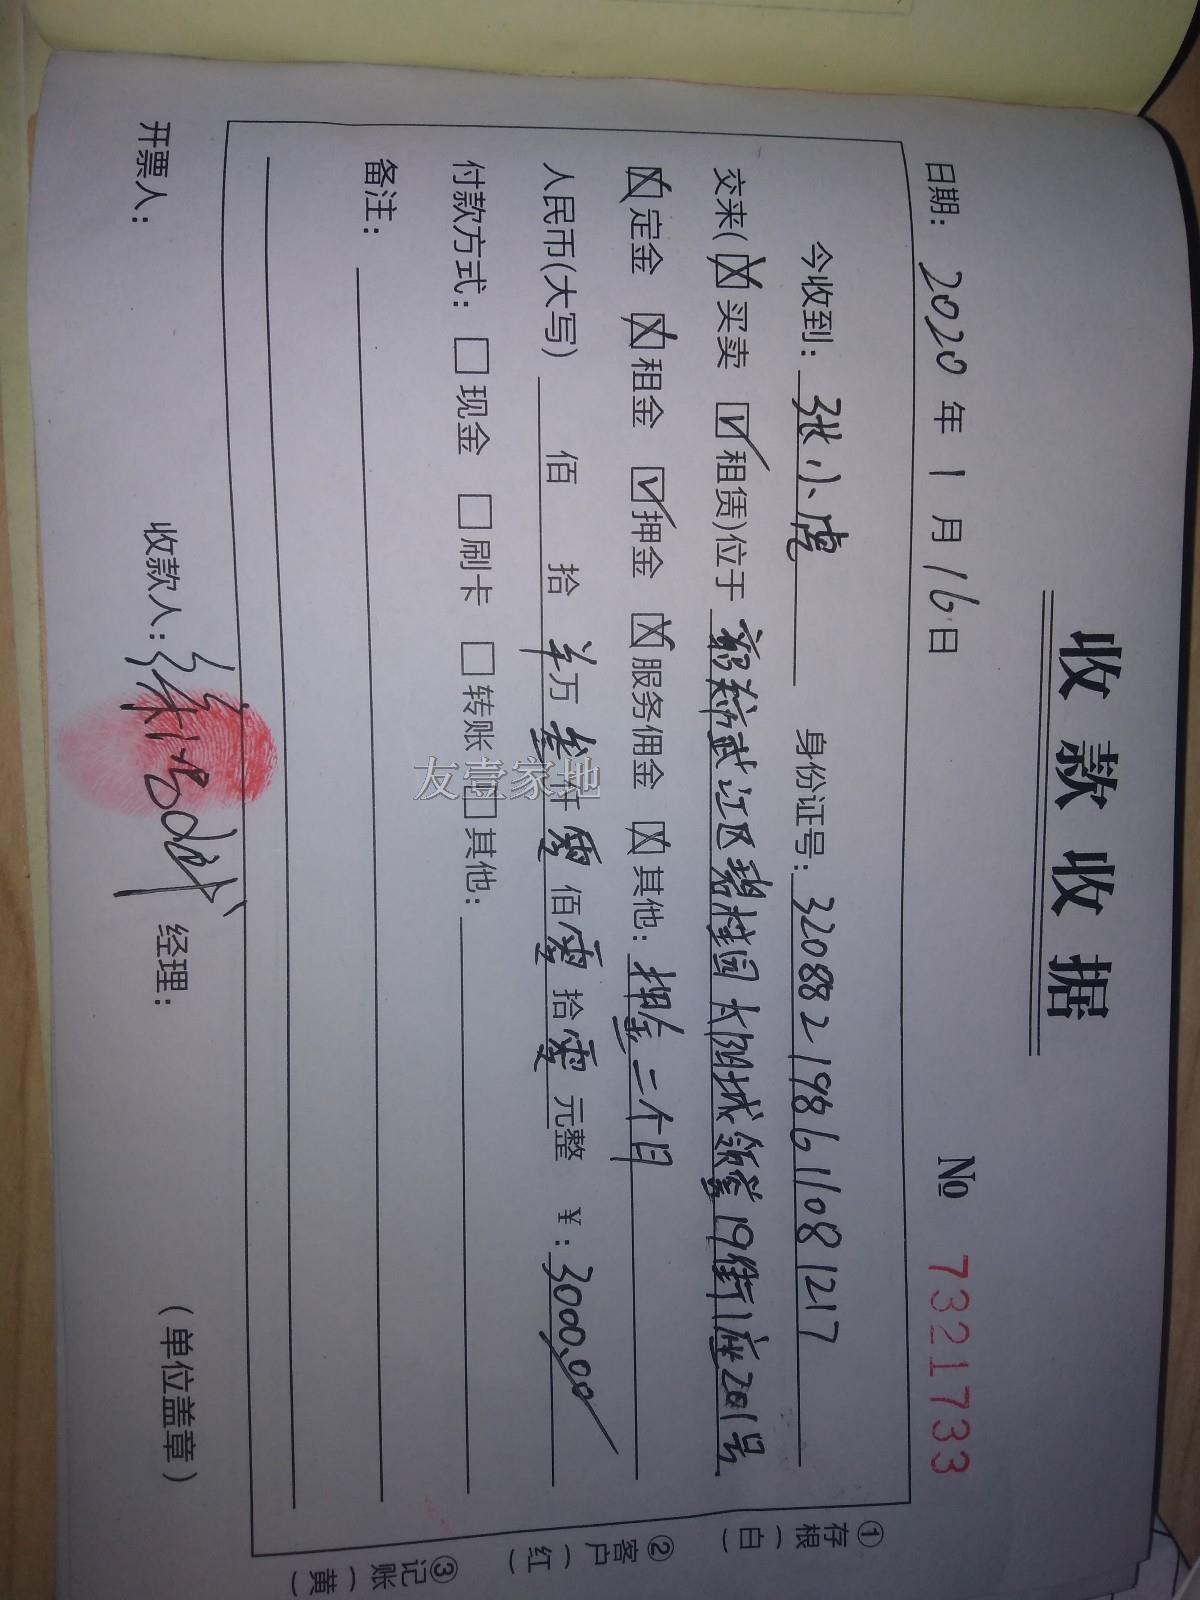 收款收据
No 7321733
日期：2020年1月16日
今收到：张小虎 身份证号：320882198611081217
交来(☒买卖 ☑租赁)位于韶关市武江区碧桂园太阳城领誉19街1座201号
☒定金 ☒租金 ☑押金 ☒服务佣金 ☒其他：押金二个月
人民币(大写) 佰 拾 万 叁仟零佰零拾零元整 ¥：3000.00
付款方式：□现金 □刷卡 □转账 □其他：
备注：
开票人： 收款人： 经理： (单位盖章)
①存根(白)
②客户(红)
③记账(黄)
友壹家地